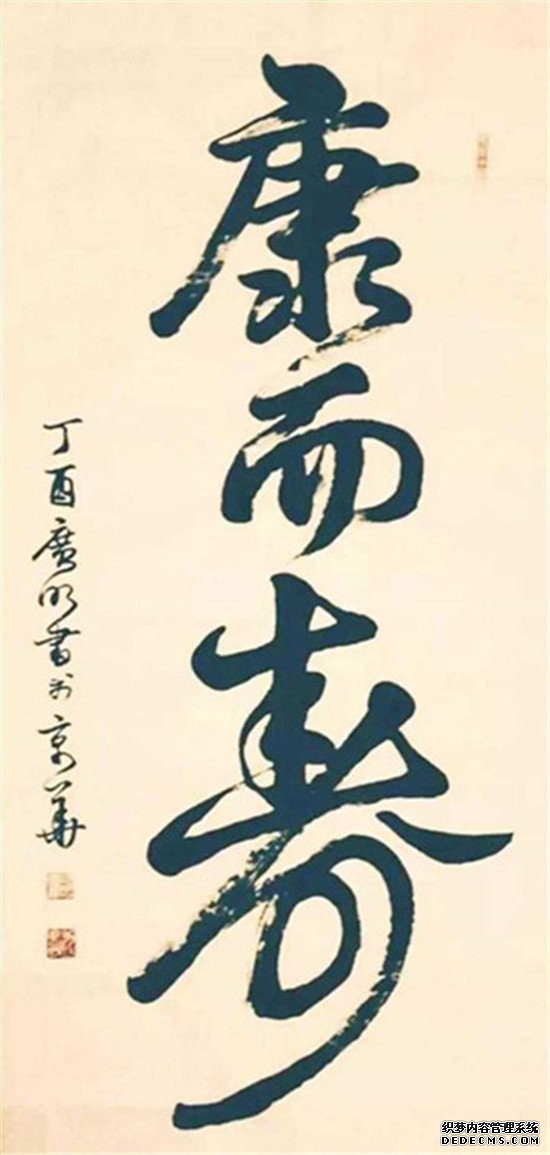 康而寿
丁酉廣明書於京華
织梦内容管理系统
DEDECMS.COM